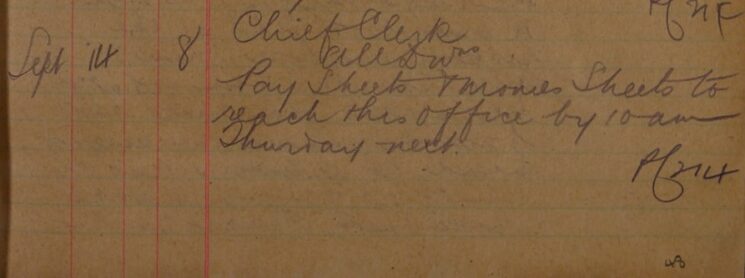 Chief Clerk
Sept 14 8 All Dvns
Pay Sheets & monies Sheets to
reach this office by 10 am
Thursday next.